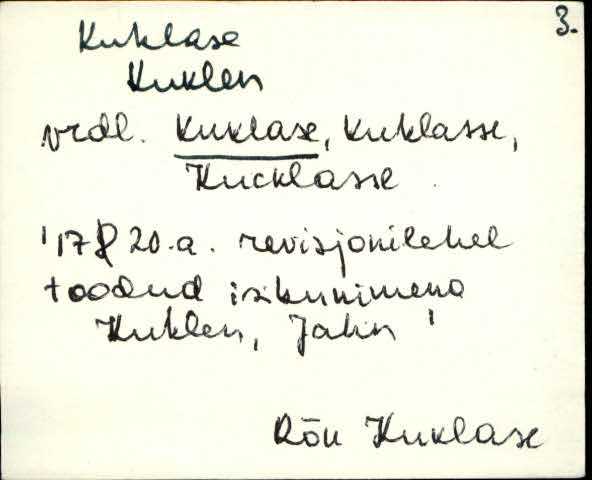 3.
Kuklase
Kuklen
vrdl. Kuklase, Kuklasse,
Kucklasse.
'1720.a. revisjonilehel
toodud isikunimena
Kuklen, Jahn'
Rõu Kuklase